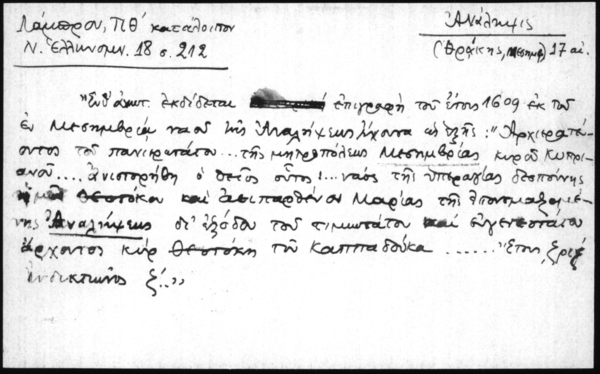 Λάμπρου, ΠΘ' κατάλοιπον
Ἀνάληψις
Ν. Ἑλληνομν. 18 σ. 212
(Θράκης, Μεσημβ) 17 αἰ.
"Ἐνθ' ἀνωτ. ἐκδίδεται ἐπιγραφὴ τοῦ ἔτους 1609 ἐκ τοῦ
ἐν Μεσημβρίᾳ ναοῦ τῆς Ἀναλήψεως ἔχουσα ὡς ἑξῆς: "Ἀρχιερατεύ-
οντος τοῦ πανιερωτάτου ... τῆς μητροπόλεως Μεσημβρίας κυροῦ Κυπρι-
ανοῦ .... ἀνιστορήθη ὁ θεῖος οὗτος !... ναὸς τῆς ὑπεραγίας δεσποίνης
ἡμῶν Θεοτόκου καὶ ἀειπαρθένου Μαρίας τῆς ἐπονομαζομέ-
νης Ἀναλήψεως δι' ἐξόδου τοῦ τιμιωτάτου καὶ εὐγενεστάτου
ἄρχοντος κὺρ Θεοτόκη τοῦ Καππαδόκα ...... "Ἔτους ͵ζριζ
ἰνδικτιῶνος ζ'..."